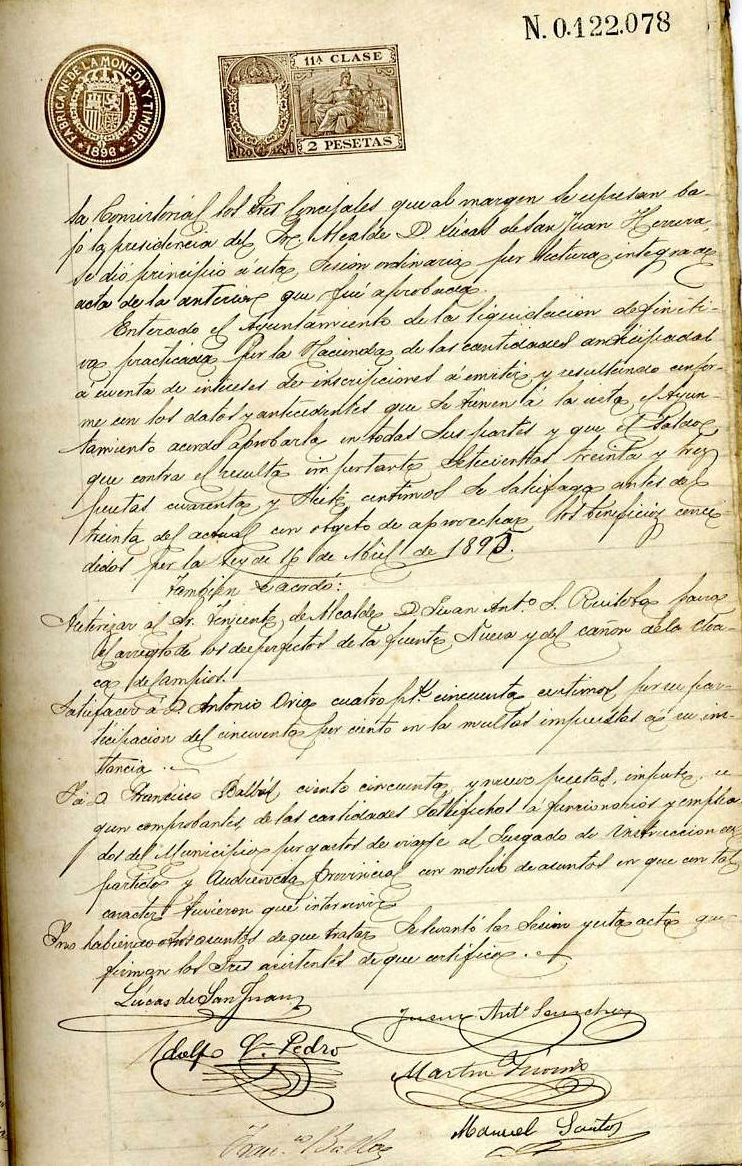 N. 0.122.078
FÁBRICA Nal DE LA MONEDA Y TIMBRE
1896
11ª CLASE
2 PESETAS
sa Consistorial los Sres Concejales que al margen se espresan ba
jo la presidencia del Sr. Alcalde D. Lucas de San Juan Herrera,
se dió principio á esta Sesion ordinaria por lectura integra del
acta de la anterior que fué aprobada.
Enterado el Ayuntamiento de la liquidacion definiti-
va practicada por la Hacienda de las cantidades anticipadas
á cuenta de intereses de inscripciones á emitir y resultando confor-
me con los datos y antecedentes que se tienen á la vista el Ayun-
tamiento acordó aprobarla en todas sus partes y que el Saldo
que contra el resulta importante Setecientas treinta y tres
pesetas cuarenta y Siete centimos se satisfaga antes del
treinta del actual con objeto de aprovechar los beneficios conce-
didos por la Ley de 16 de Abril de 1895.
Tambien se acordó:
Autorizar al Sr. Teniente de Alcalde D. Juan Ant.º S. para
el arreglo de los desperfectos de la fuente Nueva y del cañon de la cloa-
ca de
Satisfacer á D. Antonio Oria cuatro pts cincuenta centimos por su par-
ticipacion del cincuenta por ciento en la multas impuestas á su ins-
tancia.
Y á D. Francisco ciento cincuenta y nueve pesetas, importe, se
gun comprobantes, de las cantidades Satisfechas á funcionarios y emplea
dos del Municipio por gastos de viage al Juzgado de Instruccion del
partido y Audiencia Provincial con motivo de asuntos en que con tal
caracter tuvieron que intervenir
Y no habiendo otros asuntos de que tratar Se levantó la Sesion y esta acta que
firman los Sres asistentes de que certifico.
Lucas de San Juan
Juan Antº Sanchez
Adolfo Vn Pedro
Martin
Manuel Santos
Franco